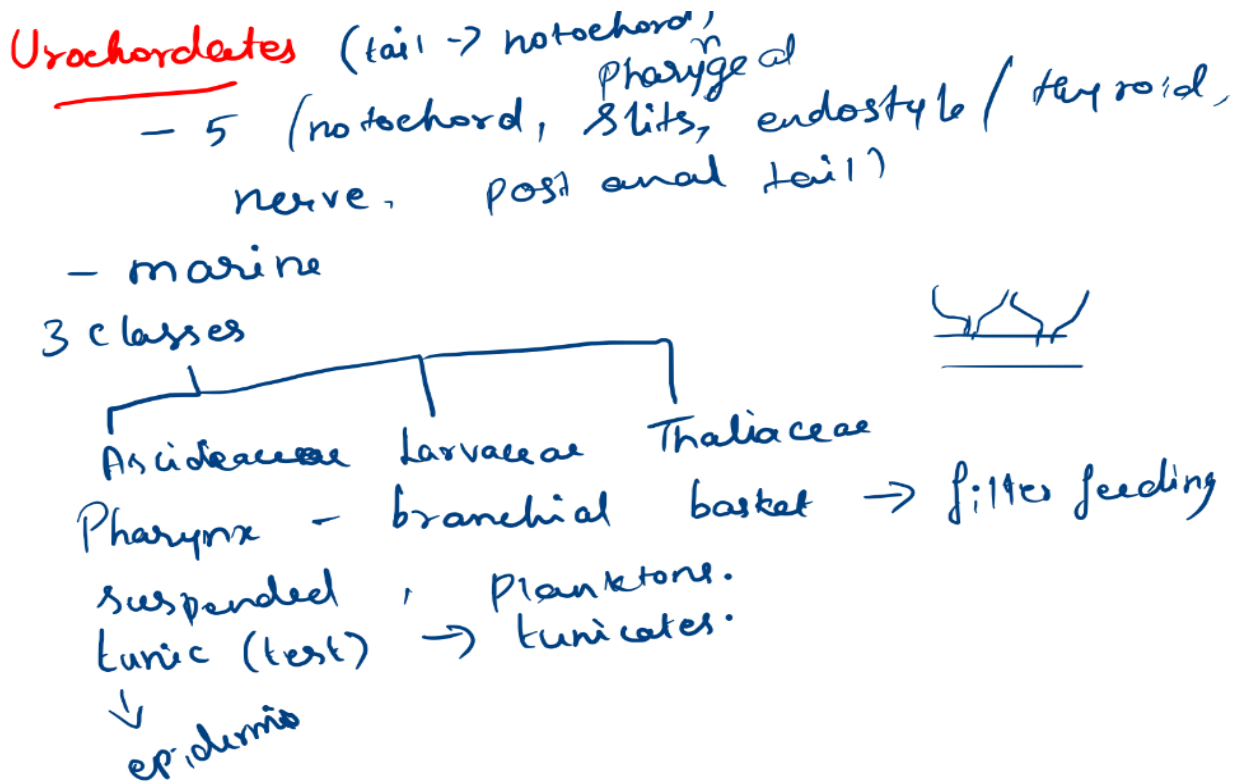 Urochordates (tail -> notochord,
- 5 (notochord, Pharyngeal slits, endostyle / thyroid,
nerve, post anal tail)
- marine
3 classes
Larvaceae Thaliaceae
Pharynx - branchial basket → filter feeding
suspended, Planktons.
tunic (test) → tunicates.
↓
epidermis